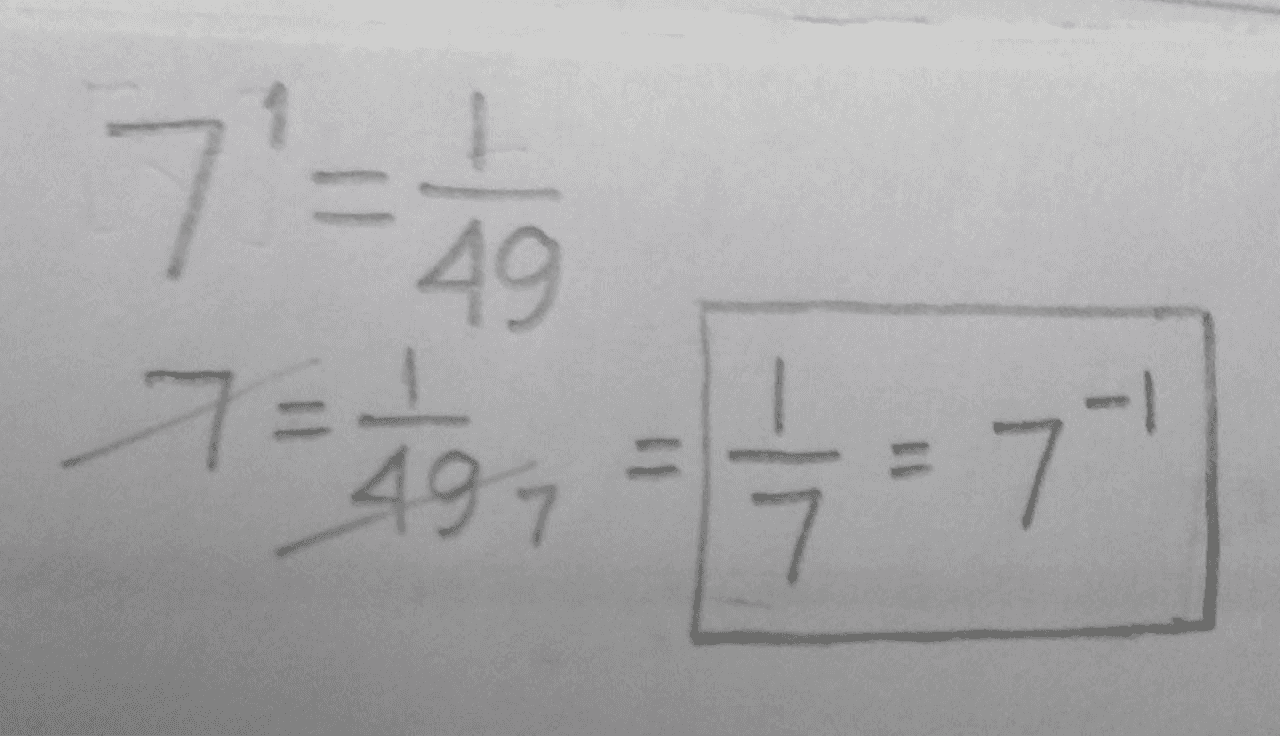 7¹ = 1/49
7 = 1/49 7 = 1/7 = 7⁻¹